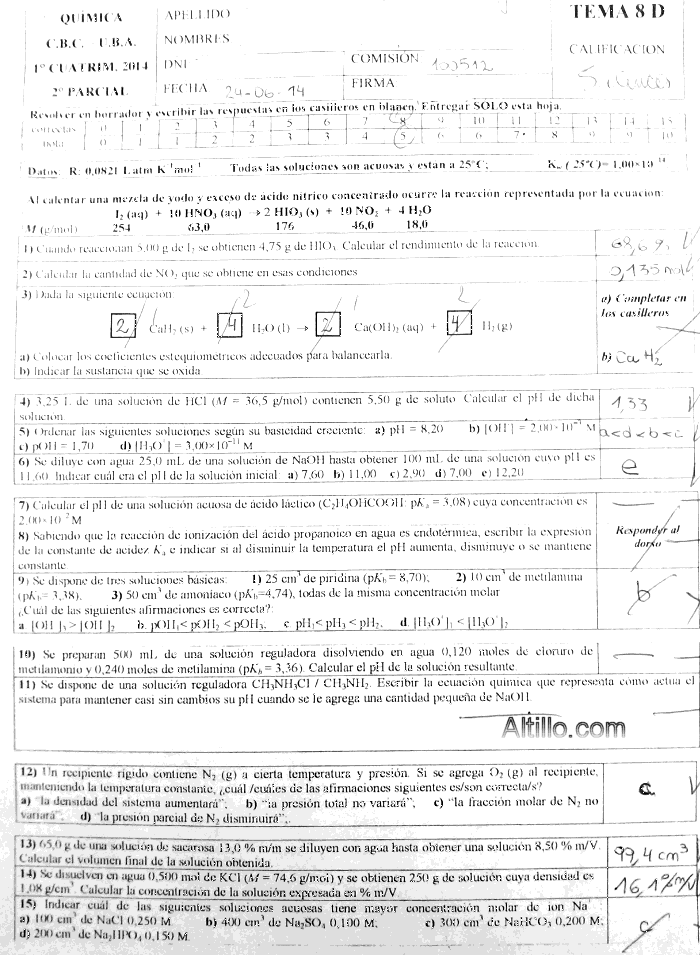 QUÍMICA
C.B.C. U.B.A.
1º CUATRIM. 2014
2º PARCIAL
APELLIDO
NOMBRES
DNI
COMISIÓN 100512
FECHA 24-06-14
FIRMA
TEMA 8 D
CALIFICACION
5
Resolver en borrador y escribir las respuestas en los casilleros en blanco. Entregar SOLO esta hoja.
correctas 0 1 2 3 4 5 6 7 8 9 10 11 12 13 14 15
nota 0 1 1 2 2 3 3 4 5 6 6 7 8 9 9 10
Datos: R: 0,0821 L atm K⁻¹ mol⁻¹ Todas las soluciones son acuosas y estan a 25ºC; Kw ( 25ºC)= 1,00×10⁻¹⁴
Al calentar una mezcla de yodo y exceso de ácido nítrico concentrado ocurre la reacción representada por la ecuación:
I₂ (aq) + 10 HNO₃ (aq) → 2 HIO₃ (s) + 10 NO₂ + 4 H₂O
M (g/mol) 254 63,0 176 46,0 18,0
1) Cuando reaccionan 5,00 g de I₂ se obtienen 4,75 g de HIO₃. Calcular el rendimiento de la reacción.
68,6 %
2) Calcular la cantidad de NO₂ que se obtiene en esas condiciones
0,135 mol
3) Dada la siguiente ecuacion:
2 1 2
2 CaH₂ (s) + 4 H₂O (l) → 2 Ca(OH)₂ (aq) + 4 H₂ (g)
a) Completar en
los casilleros
a) Colocar los coeficientes estequiométricos adecuados para balancearla.
b) Indicar la sustancia que se oxida
b) Ca H₂
4) 3,25 L de una solución de HCl (M = 36,5 g/mol) contienen 5,50 g de soluto. Calcular el pH de dicha
solución.
1,33
5) Ordenar las siguientes soluciones según su basicidad creciente: a) pH = 8,20 b) [OH⁻] = 2,00×10⁻³ M
c) pOH = 1,70 d) [H₃O⁺] = 3,00×10⁻¹¹ M
a<d<b<c
6) Se diluye con agua 25,0 mL de una solución de NaOH hasta obtener 100 mL de una solución cuyo pH es
11,60. Indicar cuál era el pH de la solución inicial: a) 7,60 b) 11,00 c) 2,90 d) 7,00 e) 12,20
e
7) Calcular el pH de una solución acuosa de ácido láctico (C₂H₄OHCOOH: pKₐ = 3,08) cuya concentración es
2,00×10⁻² M
8) Sabiendo que la reacción de ionización del ácido propanoico en agua es endotérmica, escribir la expresión
de la constante de acidez Kₐ e indicar si al disminuir la temperatura el pH aumenta, disminuye o se mantiene
constante.
Responder al
dorso
9) Se dispone de tres soluciones básicas: 1) 25 cm³ de piridina (pK_b = 8,70); 2) 10 cm³ de metilamina
(pK_b= 3,38). 3) 50 cm³ de amoníaco (pK_b=4,74), todas de la misma concentración molar
¿Cuál de las siguientes afirmaciones es correcta?:
a. [OH⁻]₃ > [OH⁻]₂ b. pOH₁< pOH₂ < pOH₃. c. pH₁< pH₃ < pH₂. d. [H₃O⁺]₁ < [H₃O⁺]₂
b
10) Se preparan 500 mL de una solución reguladora disolviendo en agua 0,120 moles de cloruro de
metilamonio y 0,240 moles de metilamina (pK_b = 3,36). Calcular el pH de la solución resultante.
11) Se dispone de una solución reguladora CH₃NH₃Cl / CH₃NH₂. Escribir la ecuación química que representa cómo actúa el
sistema para mantener casi sin cambios su pH cuando se le agrega una cantidad pequeña de NaOH.
Altillo.com
12) Un recipiente rígido contiene N₂ (g) a cierta temperatura y presión. Si se agrega O₂ (g) al recipiente,
manteniendo la temperatura constante, ¿cuál /cuáles de las afirmaciones siguientes es/son correcta/s?
a) "la densidad del sistema aumentará"; b) "la presión total no variará"; c) "la fracción molar de N₂ no
variará"; d) "la presión parcial de N₂ disminuirá";.
a.
13) 65,0 g de una solución de sacarosa 13,0 % m/m se diluyen con agua hasta obtener una solución 8,50 % m/V.
Calcular el volumen final de la solución obtenida.
99,4 cm³
14) Se disuelven en agua 0,500 mol de KCl (M = 74,6 g/mol) y se obtienen 250 g de solución cuya densidad es
1,08 g/cm³. Calcular la concentración de la solución expresada en % m/V
16,1%m/v
15) Indicar cuál de las siguientes soluciones acuosas tiene mayor concentración molar de ion Na⁺
a) 100 cm³ de NaCl 0,250 M b) 400 cm³ de Na₂SO₄ 0,100 M; c) 300 cm³ de NaHCO₃ 0,200 M;
d) 200 cm³ de Na₂HPO₄ 0,150 M
c